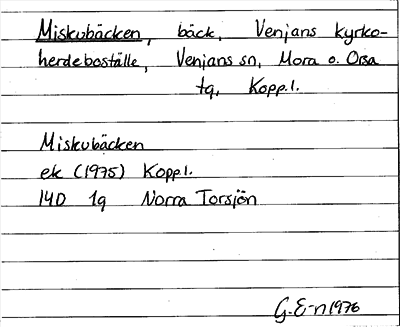 Miskubäcken, bäck, Venjans kyrko-
herdeboställe, Venjans sn, Mora o. Orsa
tg, Kopp.l.
Miskubäcken
ek (1975) Koppl.
14D 1g Norra Torsjön
G. E-n 1976